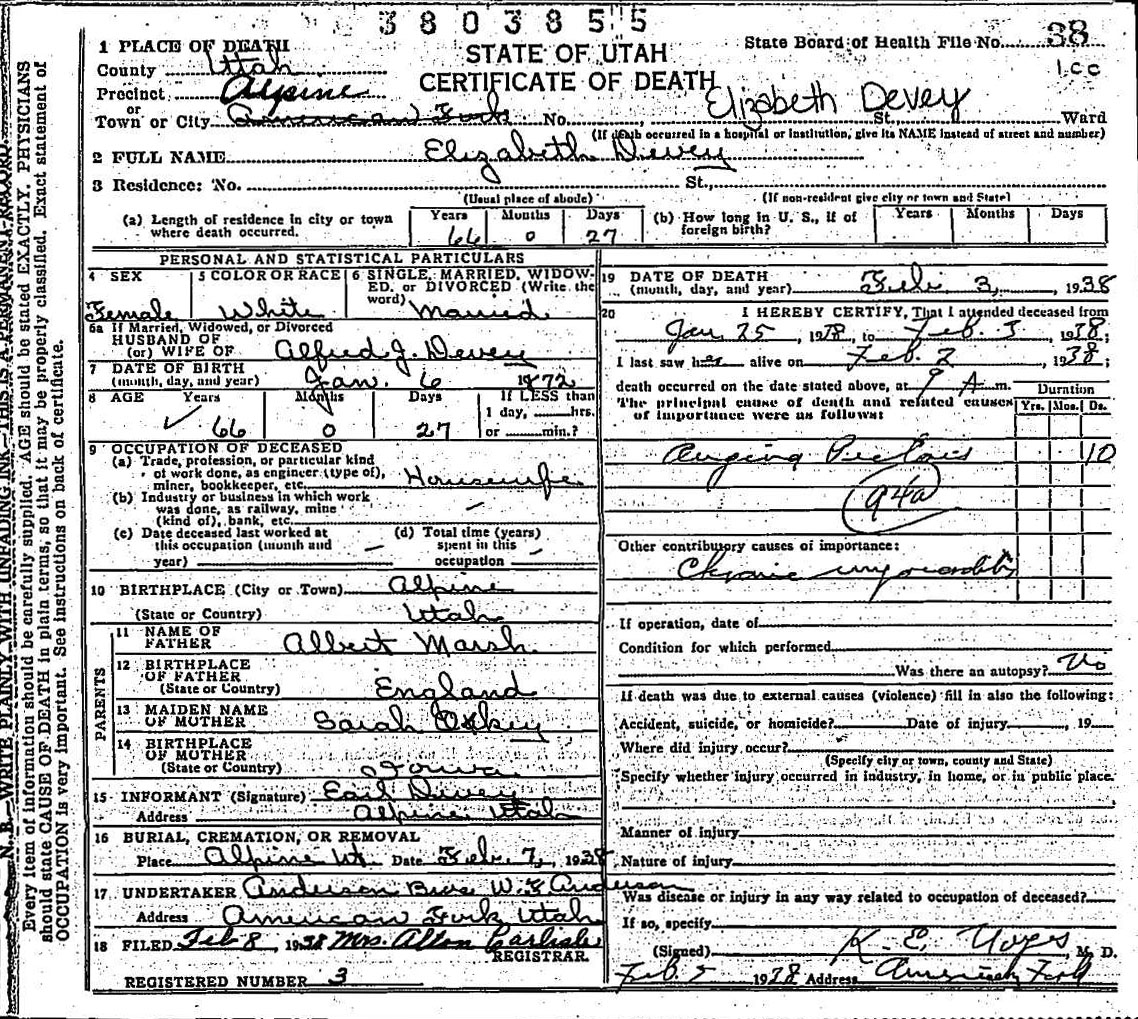 3803855
STATE OF UTAH
CERTIFICATE OF DEATH
State Board of Health File No. 38
100
1 PLACE OF DEATH
County Utah
Precinct Alpine
or
Town or City American Fork No. , Elizabeth Devey St., Ward
(If death occurred in a hospital or institution, give its NAME instead of street and number)
2 FULL NAME Elizabeth Devey
3 Residence: No. St.,
(Usual place of abode) (If non-resident give city or town and State)
(a) Length of residence in city or town where death occurred. Years 66 Months 0 Days 27
(b) How long in U. S., if of foreign birth? Years Months Days
PERSONAL AND STATISTICAL PARTICULARS
4 SEX Female
5 COLOR OR RACE White
6 SINGLE, MARRIED, WIDOWED, or DIVORCED (Write the word) Married
6a If Married, Widowed, or Divorced
HUSBAND OF
(or) WIFE OF Alfred J. Devey
7 DATE OF BIRTH
(month, day, and year) Jan. 6 1872
8 AGE Years 66 Months 0 Days 27 If LESS than 1 day, hrs. or min.?
9 OCCUPATION OF DECEASED
(a) Trade, profession, or particular kind of work done, as engineer (type of), miner, bookkeeper, etc. Housewife
(b) Industry or business in which work was done, as railway, mine (kind of), bank, etc. —
(c) Date deceased last worked at this occupation (month and year) —
(d) Total time (years) spent in this occupation —
10 BIRTHPLACE (City or Town) Alpine
(State or Country) Utah
PARENTS
11 NAME OF FATHER Albert Marsh
12 BIRTHPLACE OF FATHER
(State or Country) England
13 MAIDEN NAME OF MOTHER Sarah Oxkey
14 BIRTHPLACE OF MOTHER
(State or Country) Iowa
15 INFORMANT (Signature) Earl Devey
Address Alpine Utah
16 BURIAL, CREMATION, OR REMOVAL
Place Alpine Ut. Date Feb. 7, 1938
17 UNDERTAKER Anderson Bros W. Anderson
Address American Fork Utah
18 FILED Feb 8 1938 Mrs. Alton Carlisle
REGISTRAR.
REGISTERED NUMBER 3
19 DATE OF DEATH
(month, day, and year) Feb. 3, 1938
20 I HEREBY CERTIFY, That I attended deceased from
Jan 25, 1938, to Feb. 3, 1938;
I last saw her alive on Feb. 2 1938;
death occurred on the date stated above, at 9 A. m.
The principal cause of death and related causes of importance were as follows:
Duration
Yrs. Mos. Ds.
Angina Pectoris 10
94a
Other contributory causes of importance:
Chronic myocarditis
If operation, date of
Condition for which performed
Was there an autopsy? No
If death was due to external causes (violence) fill in also the following:
Accident, suicide, or homicide? Date of injury , 19
Where did injury occur?
(Specify city or town, county and State)
Specify whether injury occurred in industry, in home, or in public place.
Manner of injury
Nature of injury
Was disease or injury in any way related to occupation of deceased?
If so, specify
(Signed) K. E. , M. D.
Feb. 5 1938 Address American Fork
N. B.—WRITE PLAINLY, WITH UNFADING INK—THIS IS A PERMANENT RECORD.
Every item of information should be carefully supplied. AGE should be stated EXACTLY. PHYSICIANS
should state CAUSE OF DEATH in plain terms, so that it may be properly classified. Exact statement of
OCCUPATION is very important. See instructions on back of certificate.